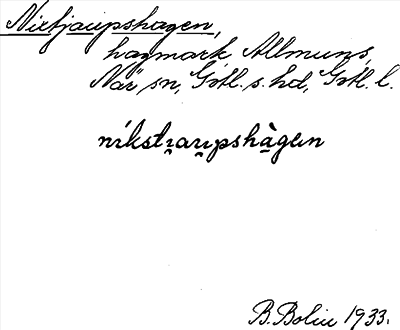 Nixtjaupshagen,
hagmark Allmuns,
När sn, Gotl. s. hd, Gotl. l.
níkstı̯au̯pshàgen
B. Bolin 1933.